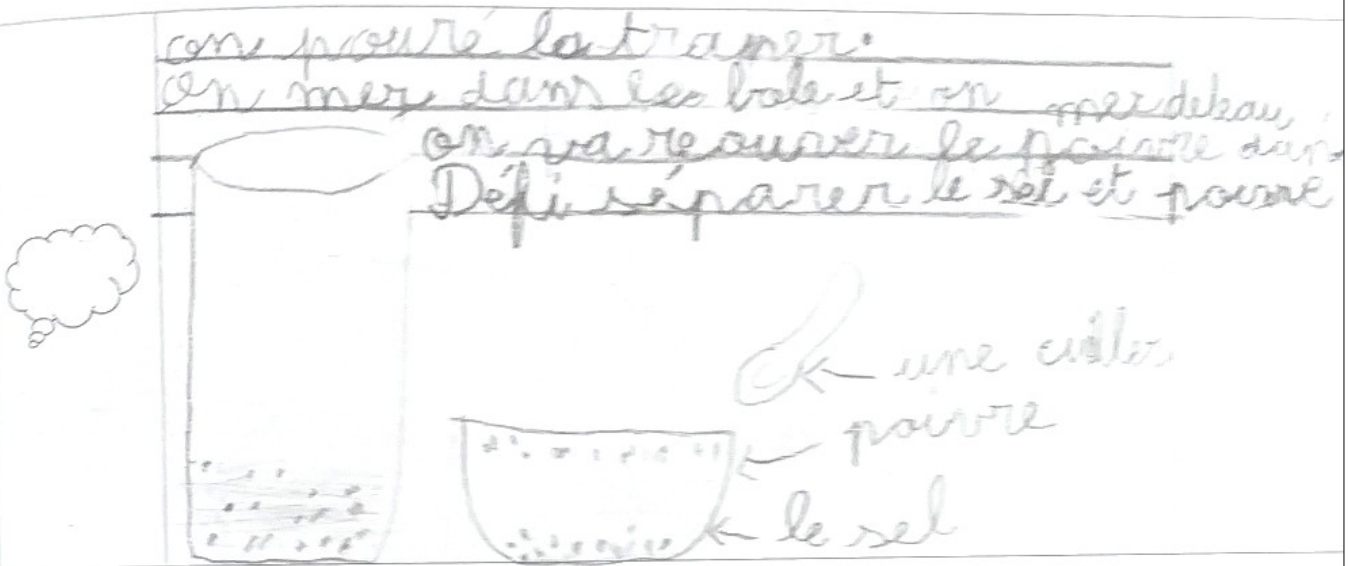 on pouré la tramer.
On mer dans les bole et on mer debeau
on va reouver le poivre dan
Défi séparer le sel et poivre
une cuiller
poivre
le sel